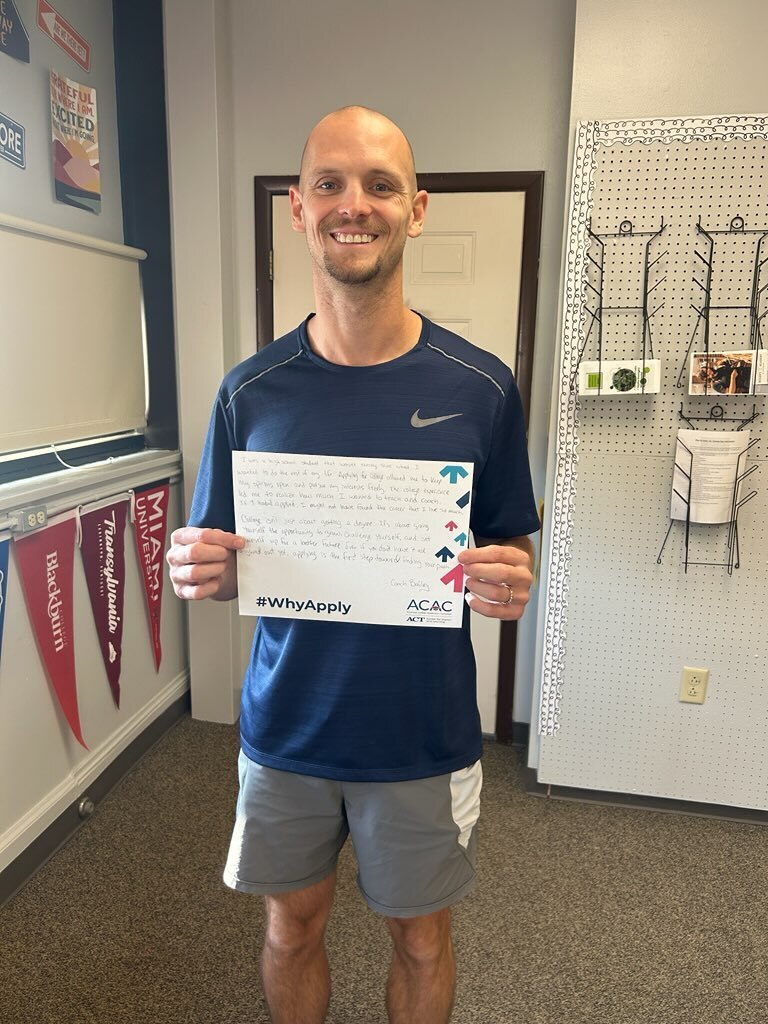 GRATEFUL
WHERE I AM.
EXCITED
WHERE I'M GOING
ORE
Blackburn
Transylvania
MIAMI
UNIVERSITY
I was a high school student that wasn't exactly sure what I
wanted to do the rest of my life. Applying for college allowed me to keep
my options open and pursue my interests freely. The college experience
led me to realize how much I wanted to teach and coach.
If I hadn't applied, I might not have found the career that I love
College isn't just about getting a degree. It's about giving
yourself the opportunity to grow, challenge yourself, and set
yourself up for a better future. Even if you don't have it all
figured out yet, applying is the first step towards finding your path.
Coach
#WhyApply
ACAC
ACT